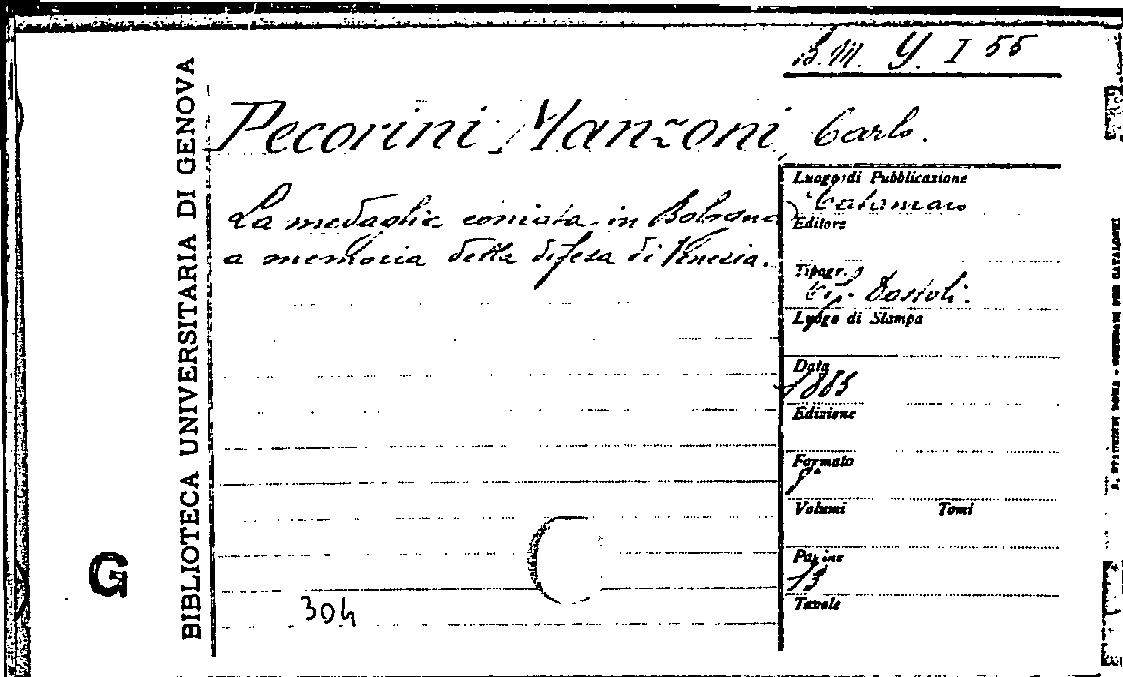 B.M. Y. I 55
BIBLIOTECA UNIVERSITARIA DI GENOVA
Pecorini Manzoni, Carlo.
La medaglia coniata in Bologna
a memoria della difesa di Venezia.
Luogo di Pubblicazione
Catanzaro
Editore
Tipogr.
Tip. Dastoli.
Luogo di Stampa
Data
1885
Edizione
Formato
8°
Volumi Tomi
Pagine
13
Tavole
G
304